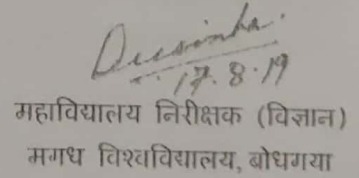 17.8.19
महाविद्यालय निरीक्षक (विज्ञान)
मगध विश्वविद्यालय, बोधगया